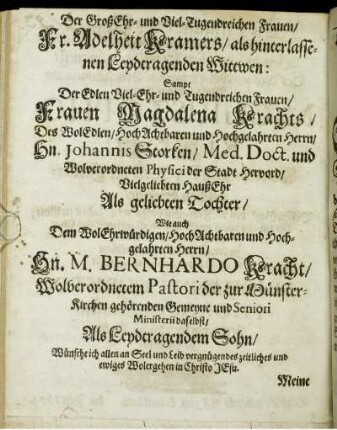 Der GroßEhr- und Viel-Tugendreichen Frauen/
Fr. Adelheit Kramers/ als hinterlasse-
nen Leydtragenden Wittwen:
Sampt
Der Edlen Viel-Ehr- und Tugendreichen Frauen/
Frauen Magdalena Krachts/
Des WolEdlen/ HochAchtbaren und Hochgelahrten Herrn/
Hn. Johannis Storken/ Med. Doct. und
Wolverordneten Physici der Stadt Hervord/
Vielgeliebten HaußEhr
Als geliebten Tochter/
Wie auch
Dem WolEhrwürdigen/ HochAchtbaren und Hoch-
gelahrten Herrn/
Hn. M. BERNHARDO Kracht/
Wolverordnetem Pastori der zur Münster-
Kirchen gehörenden Gemeyne und Seniori
Ministerii daselbst/
Als Leydtragendem Sohn/
Wünsche ich allen an Seel und Leib vergnügendes zeitliches und
ewiges Wolergehen in Christo JEsu.
Meine